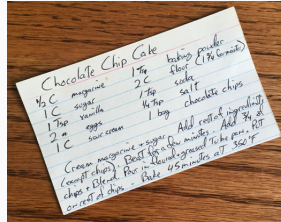 Chocolate Chip Cake
½ C margarine 1 Tsp baking powder
1 C sugar 2 C flour
1 Tsp vanilla 1 Tsp soda
2 eggs ¼ Tsp salt
1 C sour cream 1 bag chocolate chips
Cream margarine + sugar. Add rest of ingredients
(except chips). Beat for a few minutes. Add ¾ of
chips + Blend. Pour in floured + greased Tube pan. Put
on rest of chips. Bake 45 minutes at 350°F